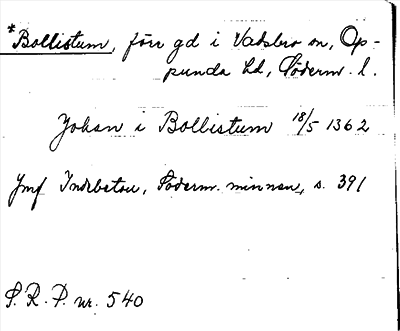 *Bollistum, förr gd i Vadsbro sn, Op-
punda hd, Söderm. l.
Johan i Bollistum 18/5 1362
Jmf Indebetou, Söderm. minnen, s. 391
S. R. P. nr. 540